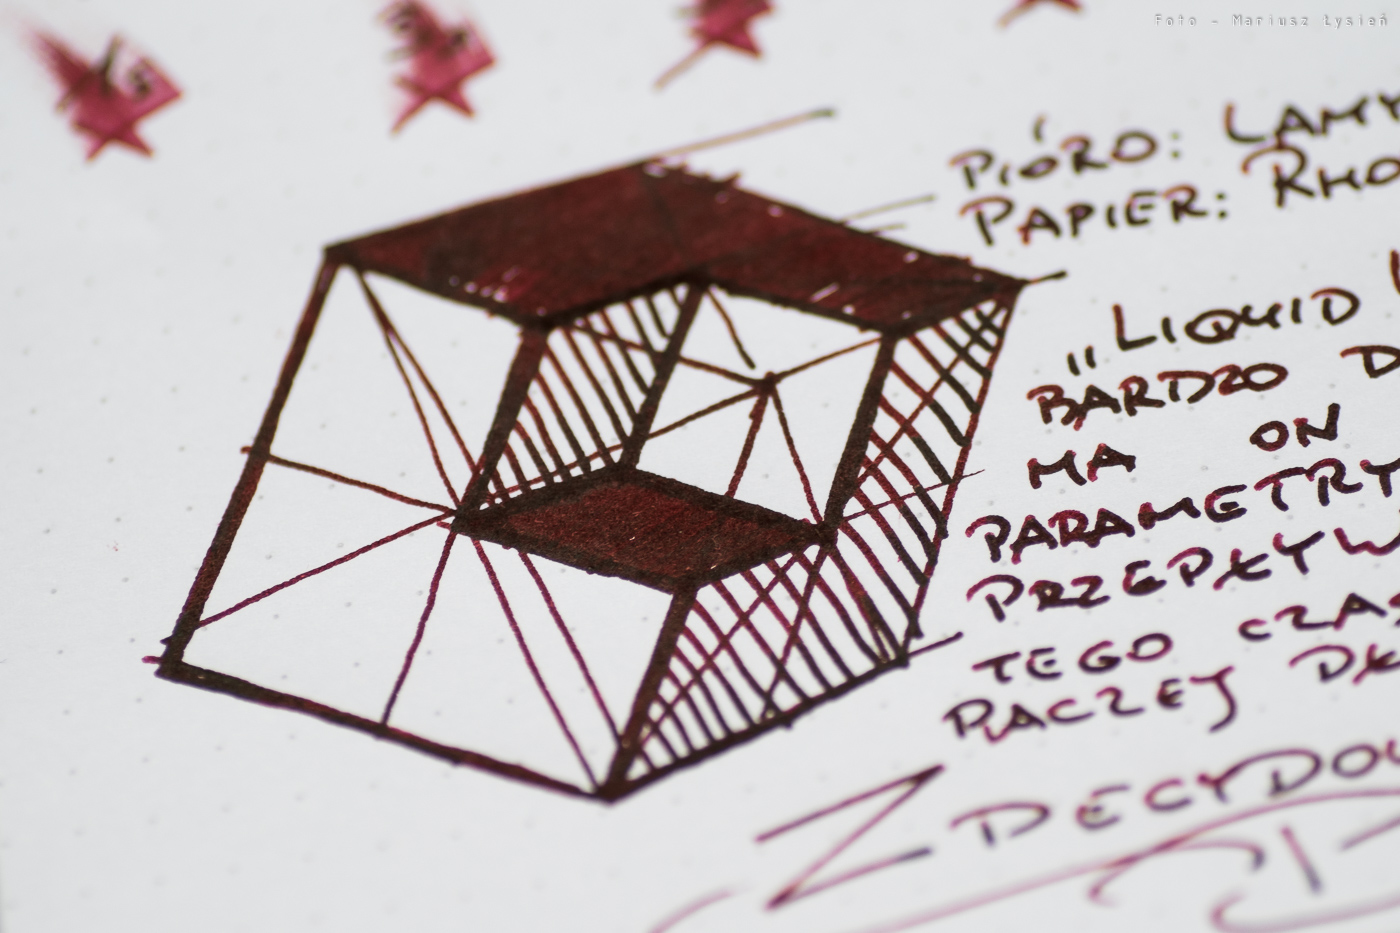 Foto - Mariusz Łysień
PIÓRO: LAMY
PAPIER: RHO
"LIQUID
BARDZO D
MA ON
PARAMETRY
PRZEPŁYW
TEGO CZAS
RACZEJ DŁ
ZDECYDOW